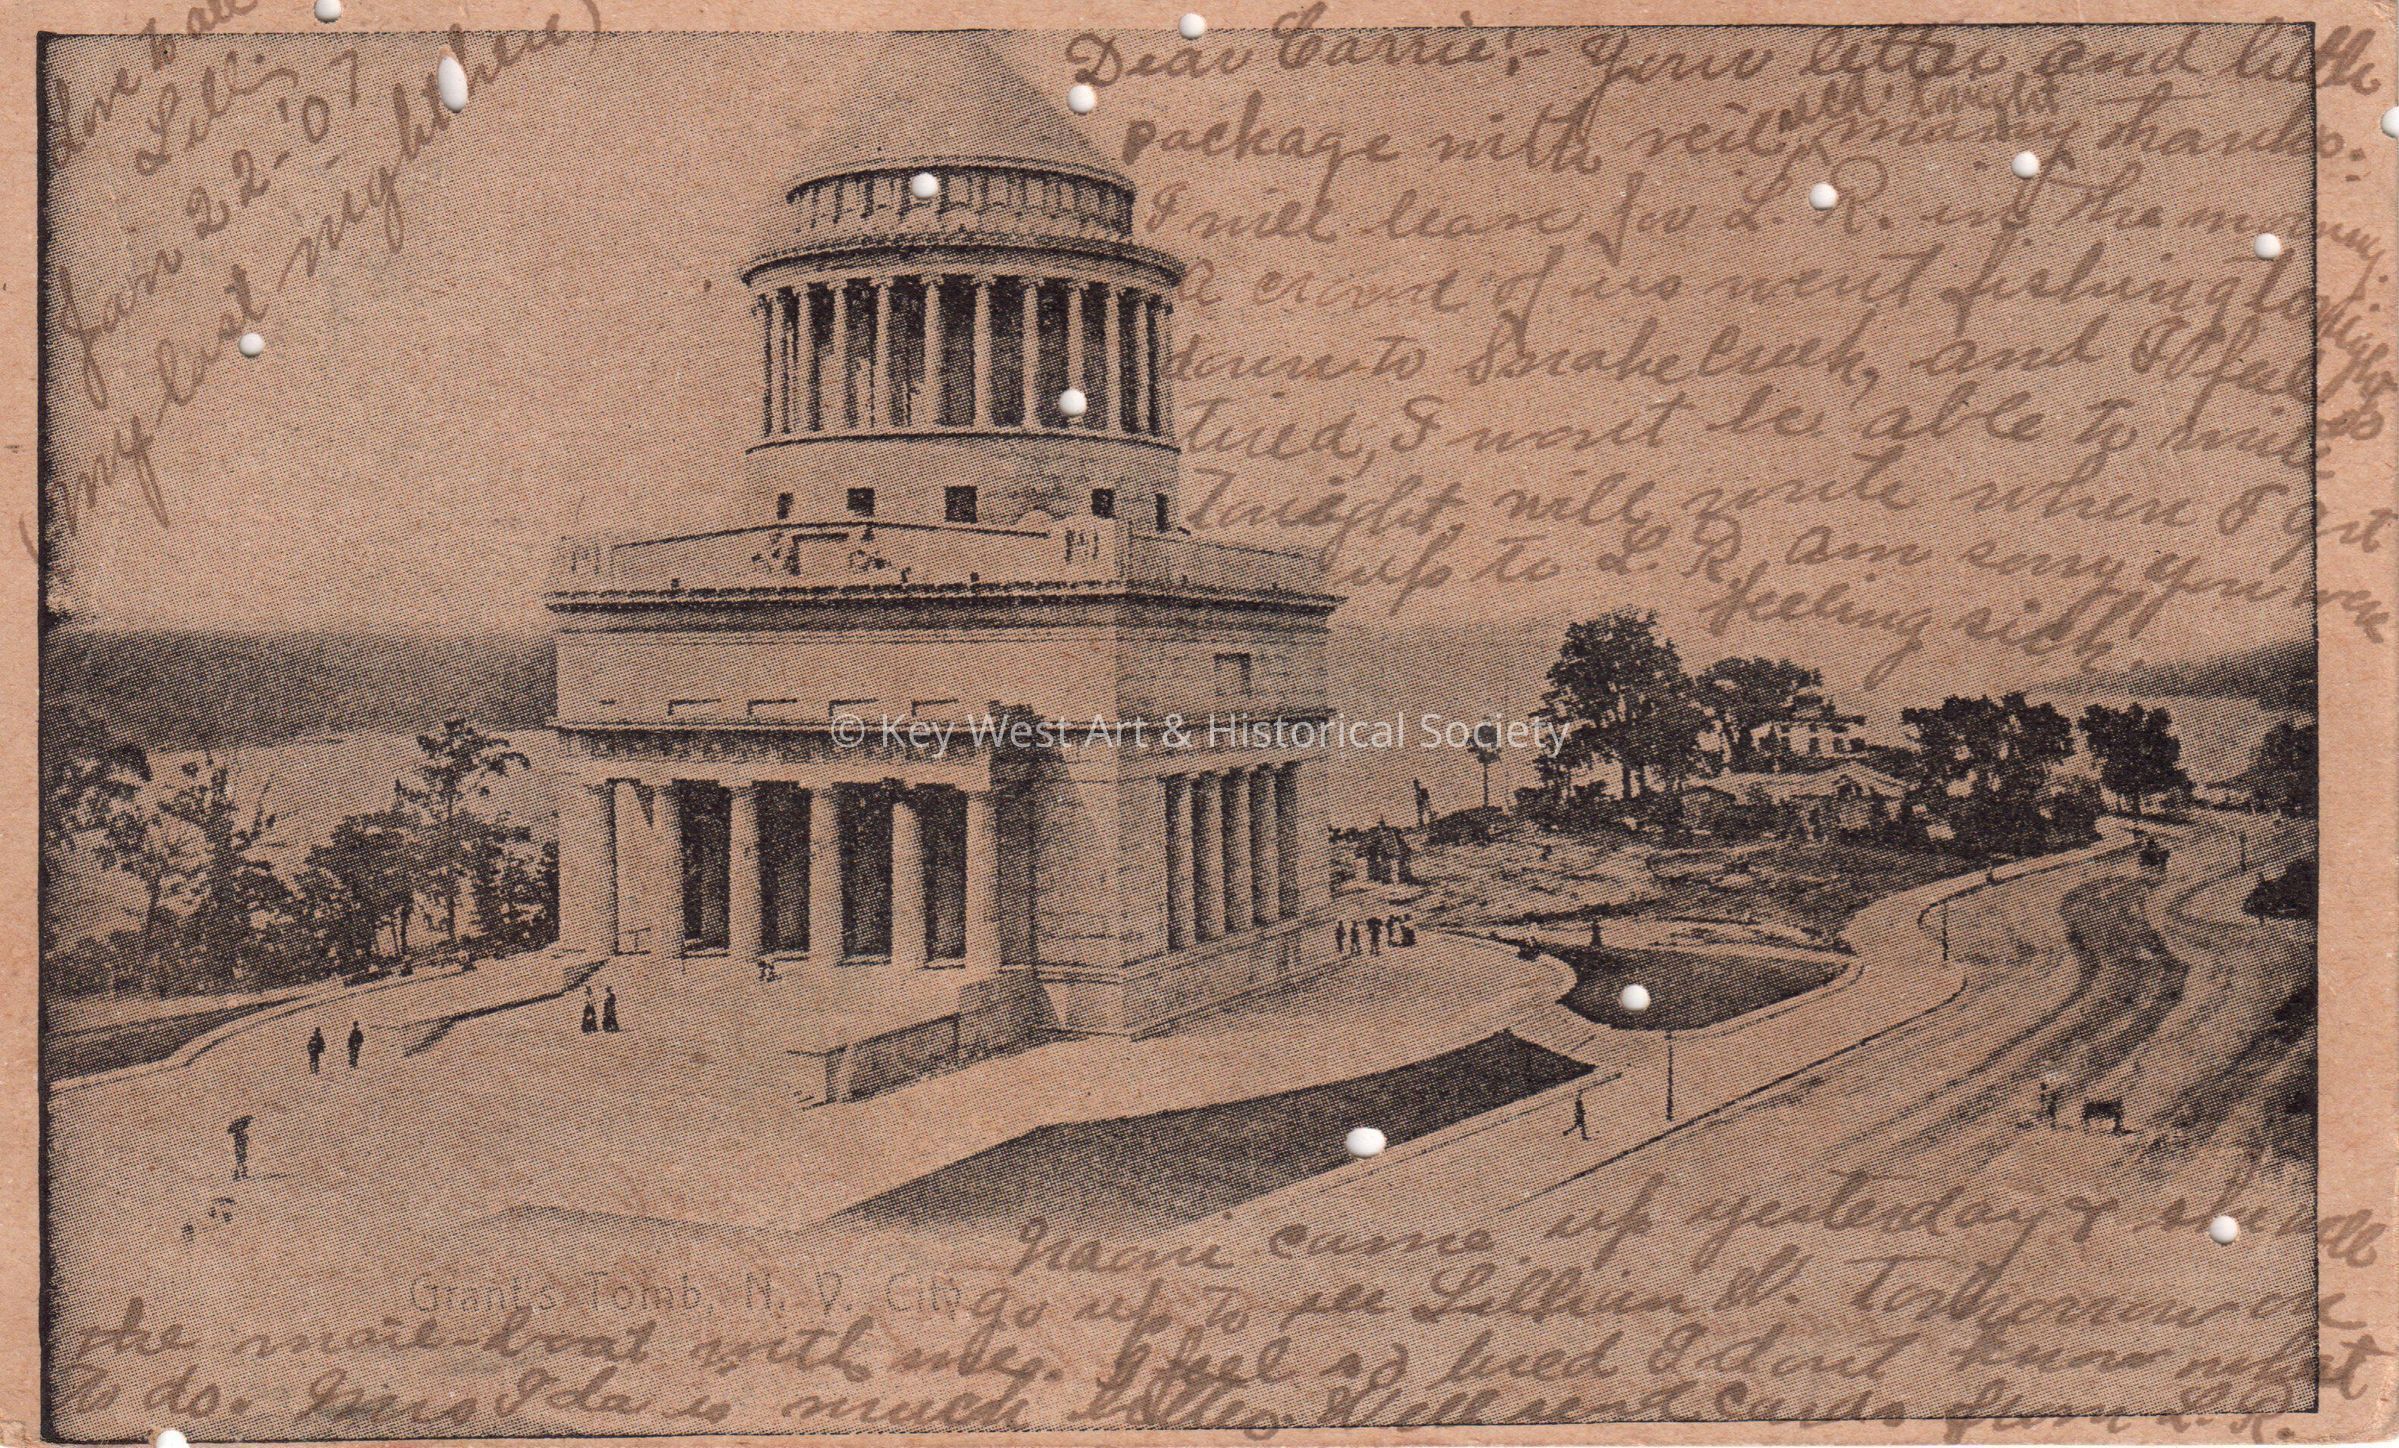 Dear Carrie! - Your letter and little
package with veil rec'd tonight, many thanks.
I will leave for L. R. in the morning.
A crowd of us went fishing today
down to Snake Creek, and I feel so
tired, I won't be able to write
tonight, will write when I get
up to L. R. Am sorry you were
feeling sick.
Naomi came up yesterday & she will
go up to see Lillian W. Tomorrow on
the mail-boat with me. I feel so tired I don't know what
to do. Miss Ida is much better. Will send cards from L. R.
Love to all
Lilli
Jan 22-'07
(my last night here)
Grant's Tomb, N. Y. City
© Key West Art & Historical Society